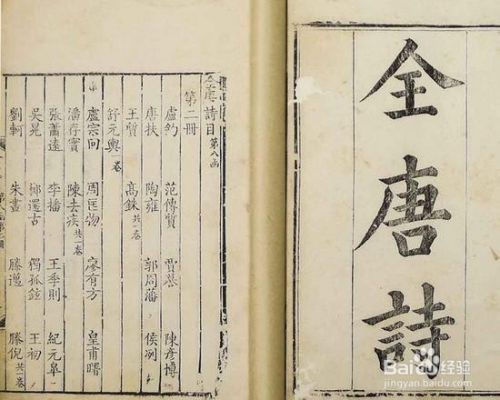 全唐詩
全唐詩目 第八函
第二冊
盧鈞 范傳質 陳彥博
唐扶 陶雍 郭周藩 侯冽
王質 高銖 共一卷
舒元輿 卷
盧宗回 周匡物 廖有方 皇甫曙
潘存實 陳去疾 共一卷
張蕭遠 李播 王季則 紀元皋
吳晃 鄭還古 獨孤鉉 王初
劉軻 朱晝 滕邁 滕倪 共一卷
Baidu经验
jingyan.baidu.com